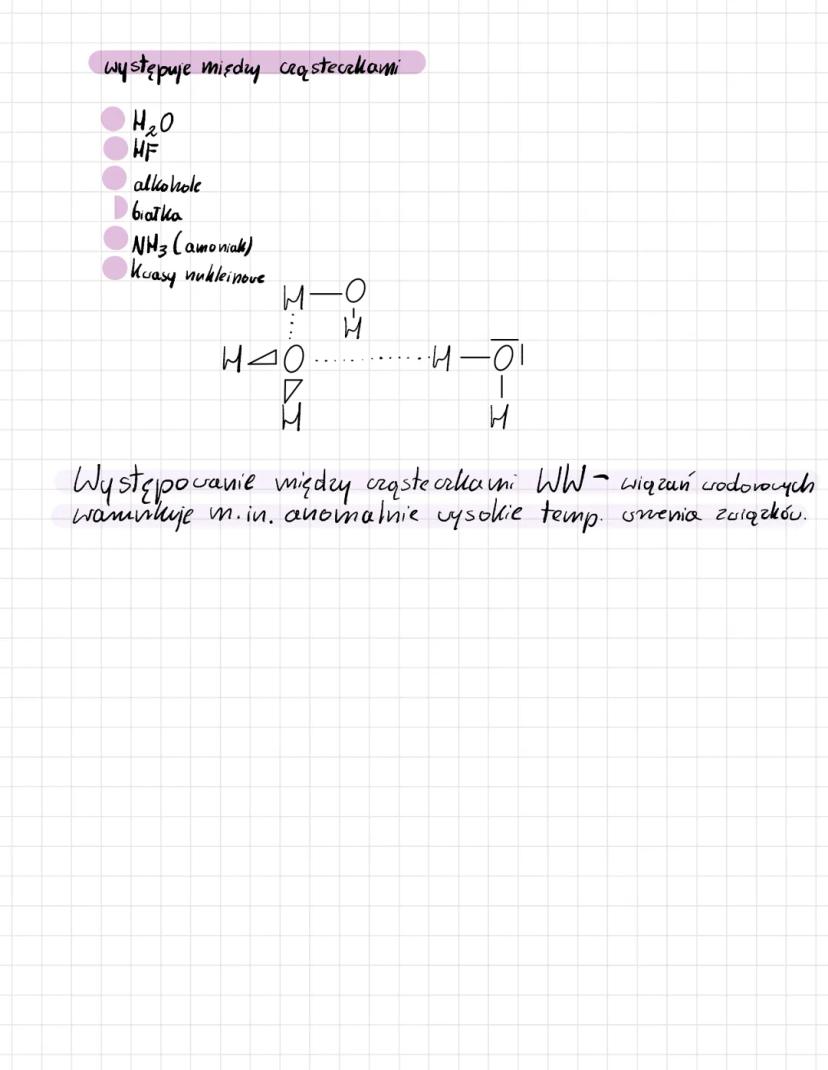 występuje między cząsteczkami
H₂O
HF
alkohole
białka
NH₃ (amoniak)
kwasy nukleinowe
H — O
H
H O ............. H — O|
H H
Występowanie między cząsteczkami WW - wiązań wodorowych
warunkuje m.in. anomalnie wysokie temp. wrzenia związków.